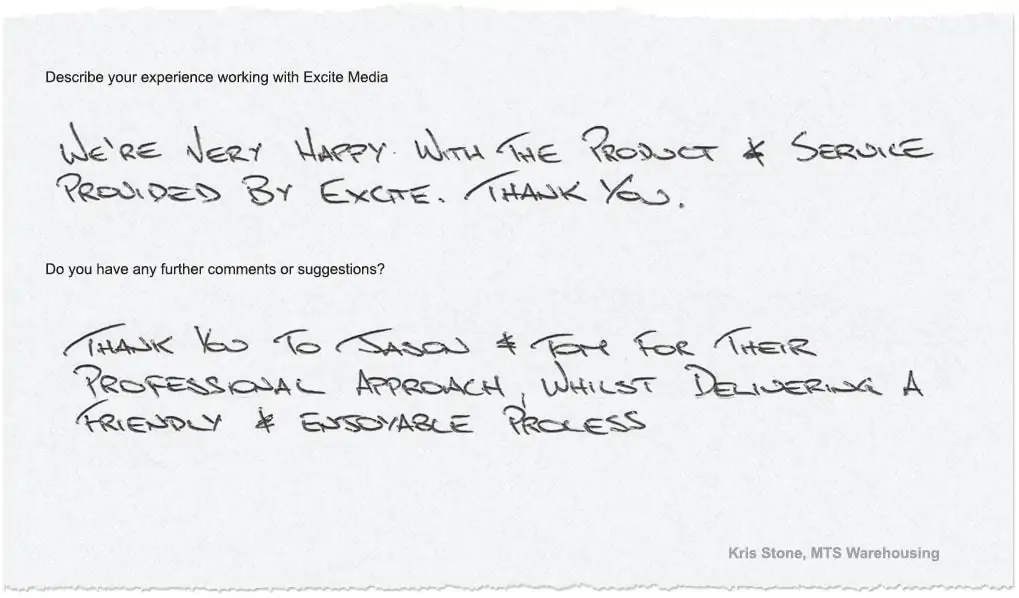 Describe your experience working with Excite Media
WE'RE VERY HAPPY WITH THE PRODUCT & SERVICE
PROVIDED BY EXCITE. THANK YOU.
Do you have any further comments or suggestions?
THANK YOU TO JASON & TOM FOR THEIR
PROFESSIONAL APPROACH, WHILST DELIVERING A
FRIENDLY & ENJOYABLE PROCESS
Kris Stone, MTS Warehousing